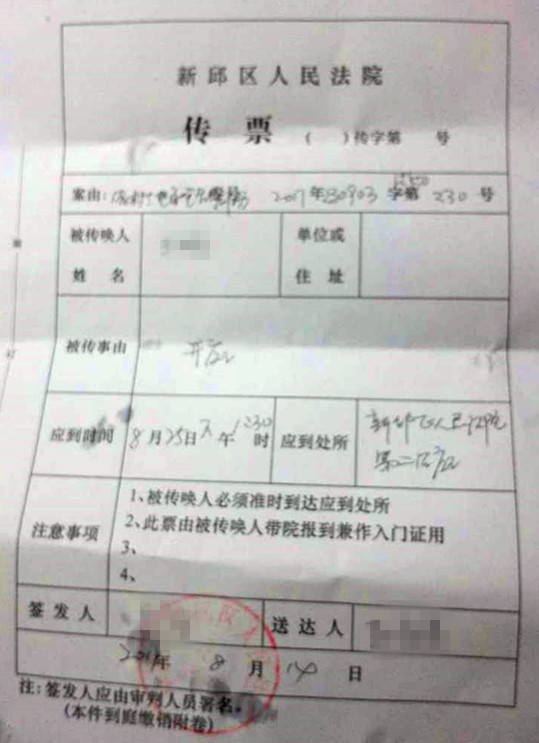 新邱区人民法院
传 票 ( )传字第 号
案由: 2017年 230903 字第 230 号
被传唤人
姓 名
单位或
住 址
被传事由 开庭
应到时间 8月25日下午1:30时
应到处所 新邱区人民法院
第二法庭
注意事项
1、被传唤人必须准时到达应到处所
2、此票由被传唤人带院报到兼作入门证用
3、
4、
签发人
送达人
年 8 月 14 日
注:签发人应由审判人员署名。
(本件到庭缴销附卷)